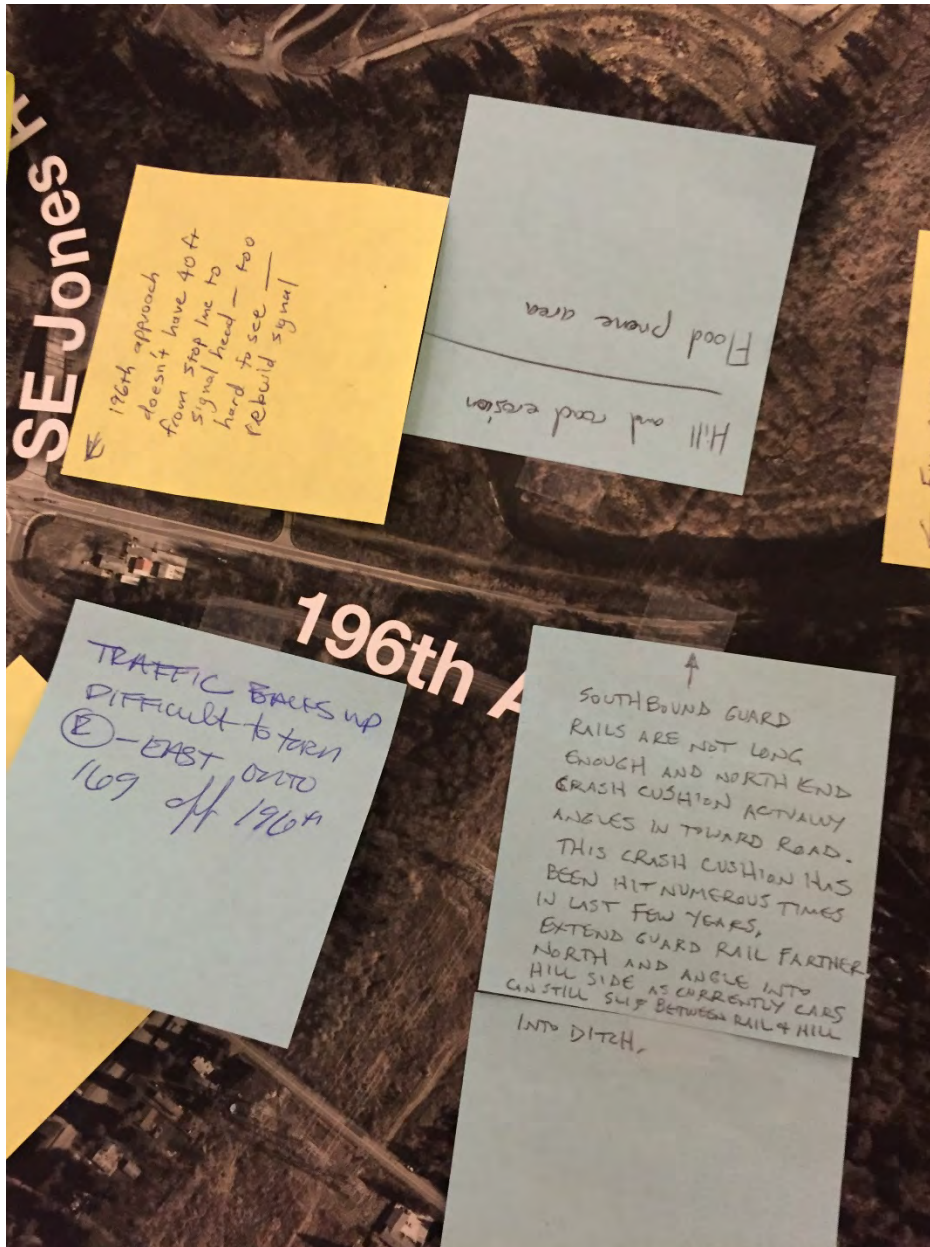 SE Jones
196th approach
doesn't have 40ft
from stop line to
signal head – too
hard to see
rebuild signal
Flood prone area
Hill and road erosion
196th A
TRAFFIC BACKS UP
DIFFICULT to turn
E – EAST ONTO
169 off 196th
SOUTHBOUND GUARD
RAILS ARE NOT LONG
ENOUGH AND NORTH END
CRASH CUSHION ACTUALLY
ANGLES IN TOWARD ROAD.
THIS CRASH CUSHION HAS
BEEN HIT NUMEROUS TIMES
IN LAST FEW YEARS.
EXTEND GUARD RAIL FARTHER
NORTH AND ANGLE INTO
HILL SIDE AS CURRENTLY CARS
CAN STILL SLIP BETWEEN RAIL & HILL
INTO DITCH.